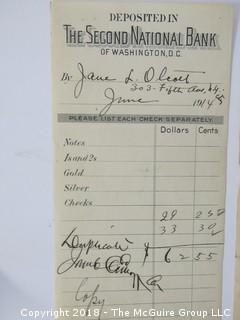 DEPOSITED IN
THE SECOND NATIONAL BANK
OF WASHINGTON, D.C.
By Jane L. Olcott
303-Fifth Ave,
June 1914
PLEASE LIST EACH CHECK SEPARATELY.
Dollars Cents
Notes
1s and 2s
Gold
Silver
Checks
29
33
Duplicate $ 62 55
Copy
Copyright 2018 - The McGuire Group LLC